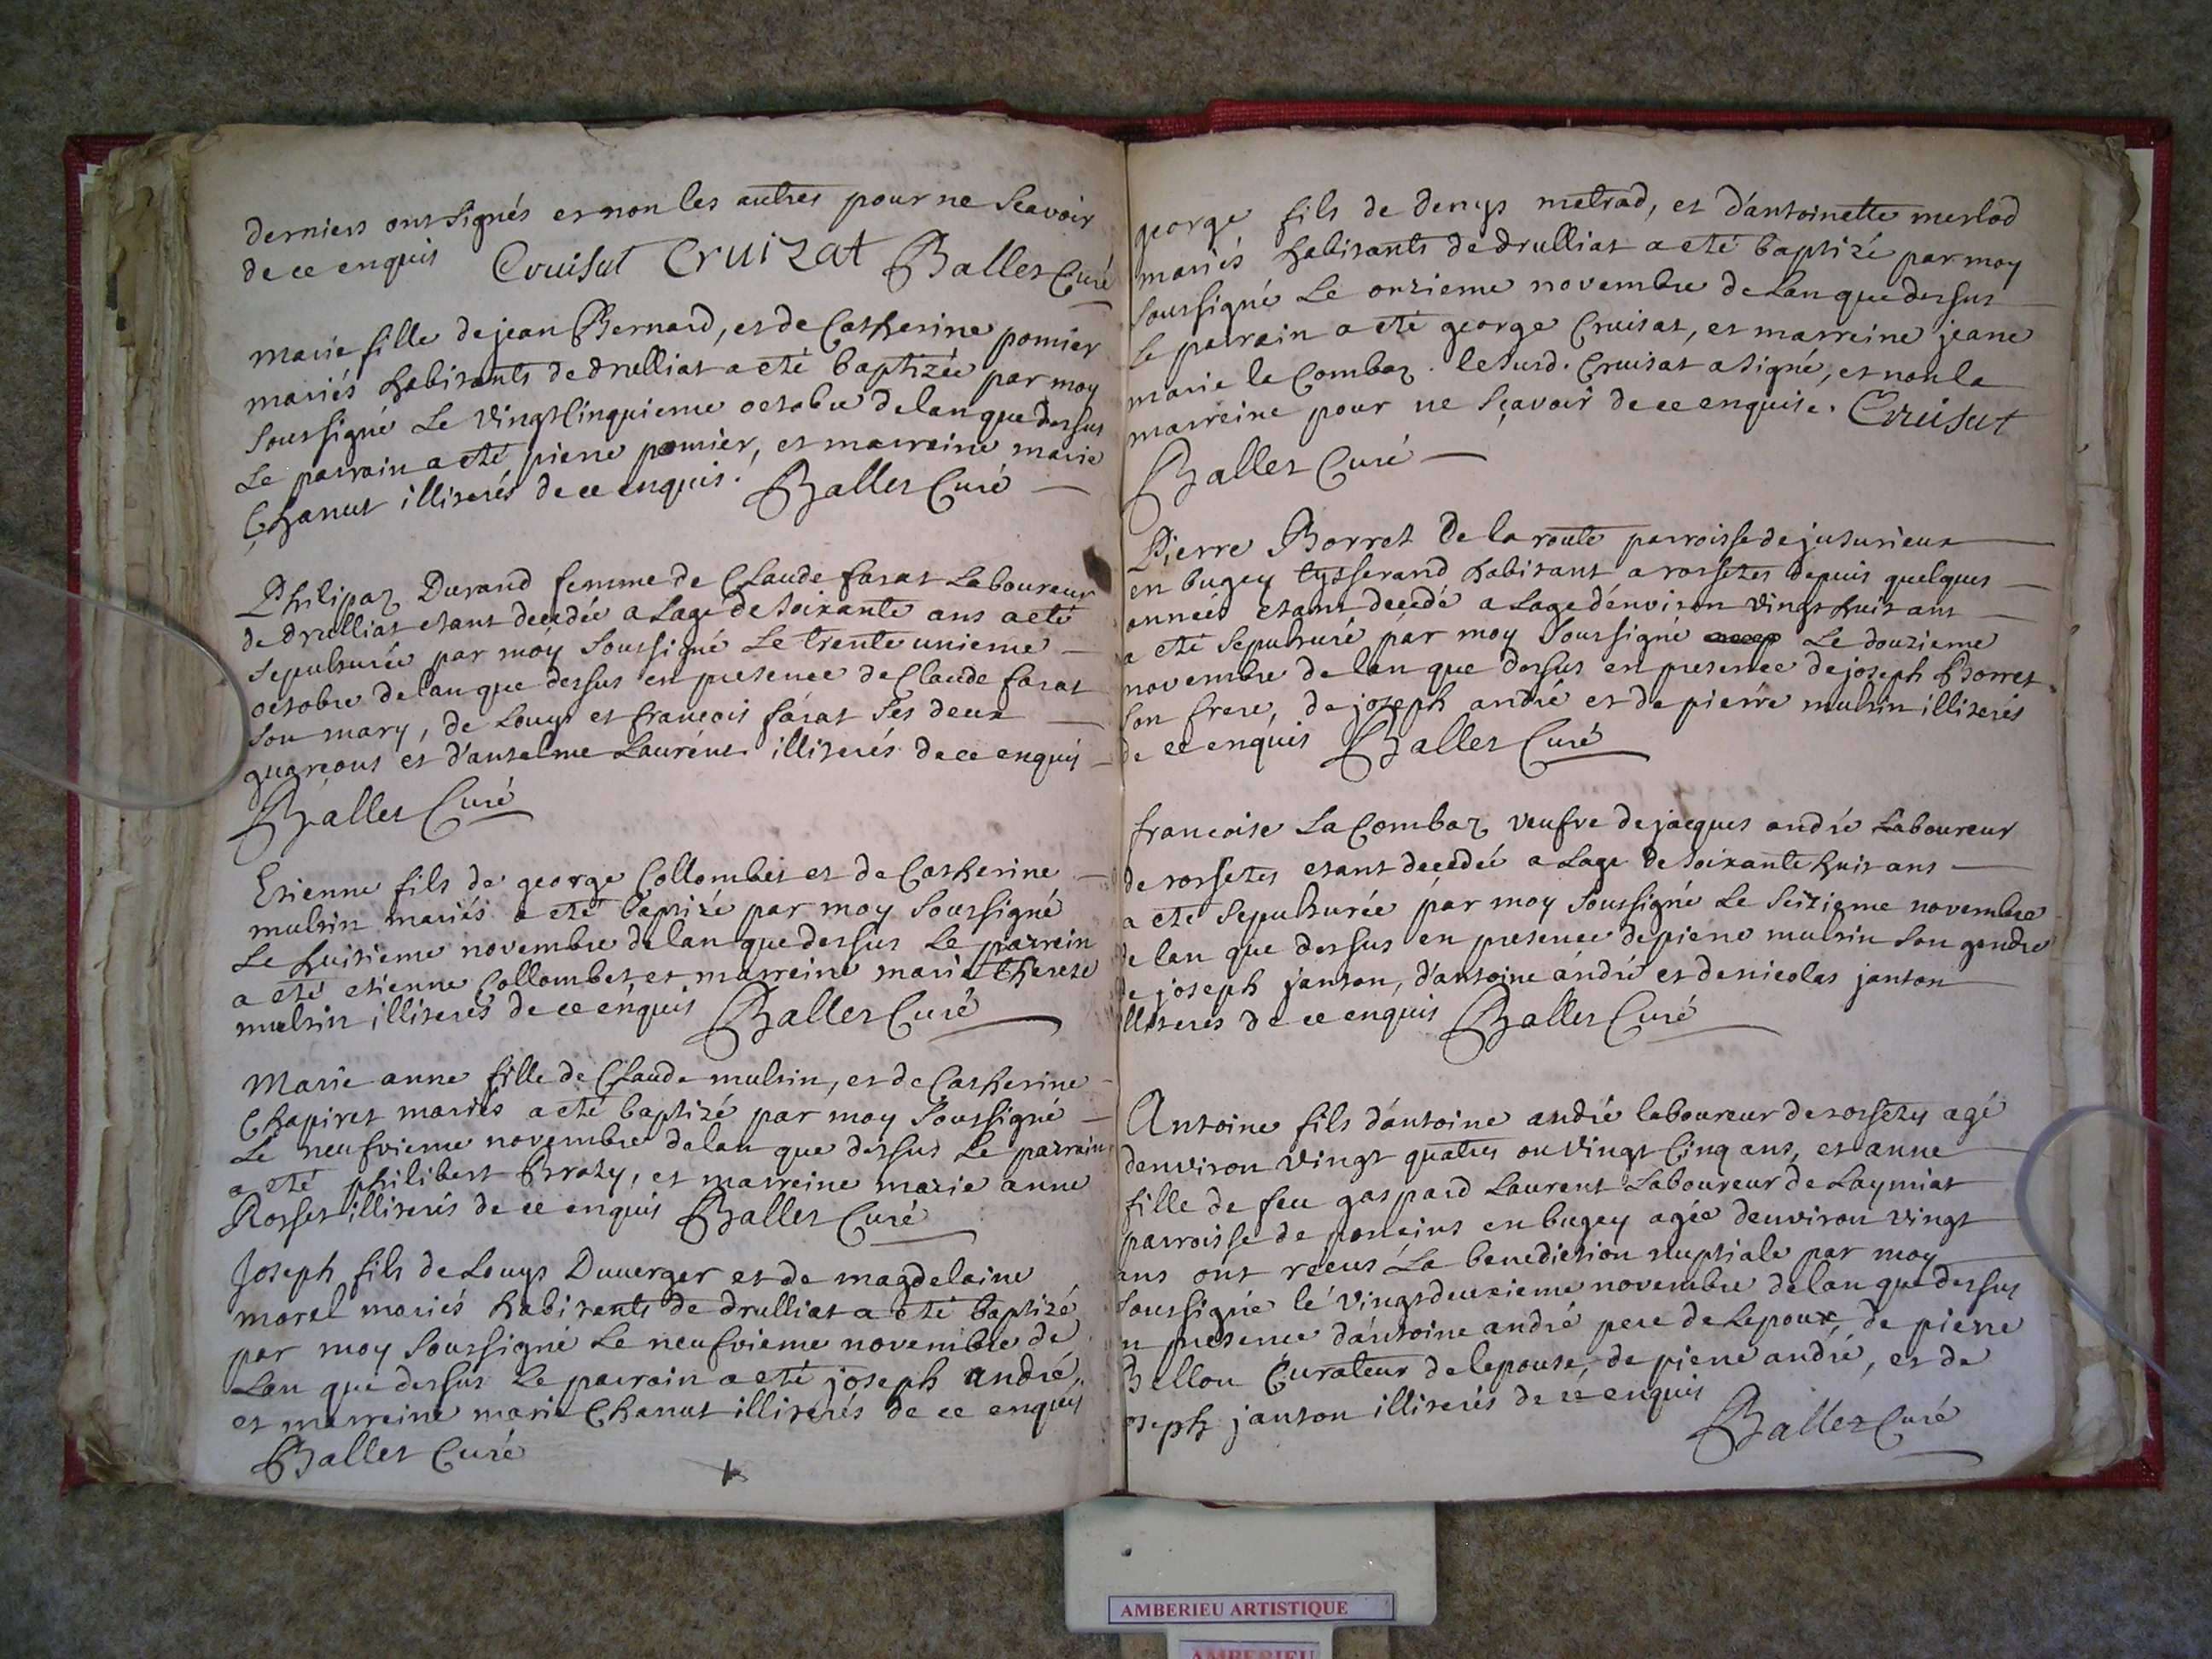 derniers ont signés et non les autres pour ne scavoir
de ce enquis Cruisat Cruizat Ballet Curé
marie fille de jean Bernard, et de Catherine pomier
mariés habitants de drulliat a eté baptizée par moy
soussigné Le vingt Cinquieme octobre de lan que dessus
Le parrain a eté pierre pomier, et marreine marie
Chanut illiterés de ce enquis. Ballet Curé
Philipaz Durand femme de Claude farat Laboureur
de drulliat etant decedée a Lage de soixante ans a eté
sepulturée par moy soussigné Le trente unieme
octobre de lan que dessus en presence de Claude farat
son mary, de Louys et francois farat ses deux
guarcons et d'anselme Laurent illiterés de ce enquis
Ballet Curé
Etienne fils de george Collombet et de Catherine
multin mariés a eté baptizé par moy soussigné
Le huitieme novembre de lan que dessus Le parrein
a eté etienne Collombet, et marreine marie therese
multin illiterés de ce enquis Ballet Curé
Marie anne fille de Claude multin, et de Catherine
Chapiret mariés a eté baptizé par moy soussigné
Le neufvieme novembre de lan que dessus Le parrain
a eté philibert Brazy, et marreine marie anne
Rosset illiterés de ce enquis Ballet Curé
Joseph fils de Louys Duverger et de magdelaine
morel mariés habitents de drulliat a eté baptizé
par moy soussigné Le neufvieme novembre de
Lan que dessus Le parrain a eté joseph andré,
et marreine marie Chanut illiterés de ce enquis
Ballet Curé
george fils de denys metrad, et d'antoinette merlod
mariés habitants de drulliat a eté baptizé par moy
soussigné Le onzieme novembre de Lan que dessus
Le parrain a eté george Cruisat, et marreine jeane
marie la Combaz. le surd. Cruisat a signé, et non la
marreine pour ne sçavoir de ce enquise. Cruisat
Ballet Curé
Pierre Borret de la route parroisse de jusurieux
en bugey tysserand habitant a rossetes depuis quelques
années etant decedé a Lage d'environ vingt huit ans
a eté sepulturé par moy soussigné Le douzieme
novembre de lan que dessus en presence de joseph Borret
son frere, de joseph andré et de pierre multin illiterés
de ce enquis Ballet Curé
francoise La Combaz veufve de jacques andré Laboureur
de rossetes etant decedée a Lage de soixante huit ans
a eté sepulturée par moy soussigné Le seizieme novembre
de lan que dessus en presence de pierre multin son gendre
de joseph janton, d'antoine andré et de nicolas janton
lliterés de ce enquis Ballet Curé
Antoine fils d'antoine andré laboureur de rossetes agé
denviron vingt quatres ou vingt Cinq ans, et anne
fille de feu gaspard Laurent Laboureur de Laymiat
parroisse de poncins en bugey agée denviron vingt
ans ont recus La benediction nuptiale par moy
soussigné le vingt deuxieme novembre de lan que dessus
n presence d'antoine andré pere de Lepoux, de pierre
Bellou Curateur de lepouse, de pierre andré, et de
oseph janton illiterés de ce enquis
Ballet Curé
AMBERIEU ARTISTIQUE
AMBERIEU